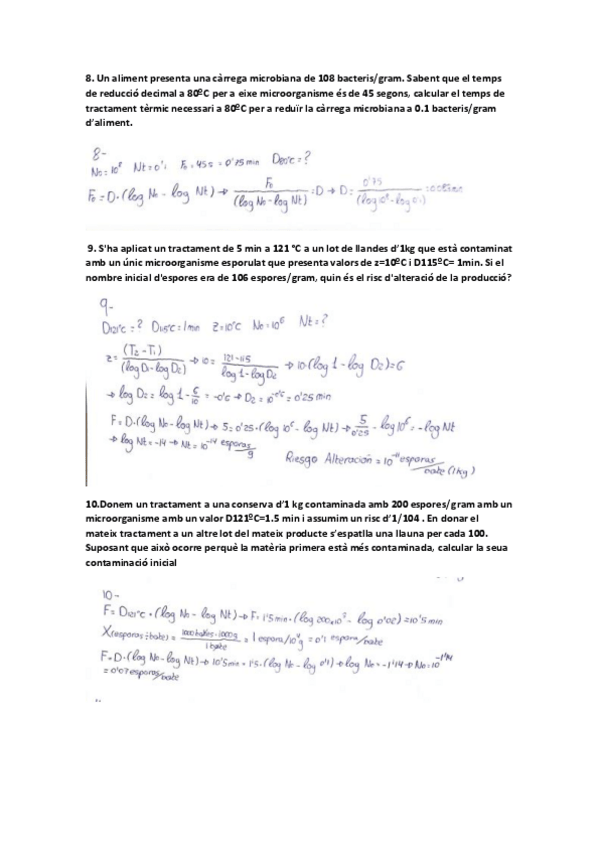 8. Un aliment presenta una càrrega microbiana de 108 bacteris/gram. Sabent que el temps
de reducció decimal a 80ºC per a eixe microorganisme és de 45 segons, calcular el temps de
tractament tèrmic necessari a 80ºC per a reduïr la càrrega microbiana a 0.1 bacteris/gram
d'aliment.
8-
No= 10⁸ Nt=0'1 F₀=45s=0'75min D80ºC=?
F₀=D·(log No-log Nt)→ F₀/(log No-log Nt) =D→D= 0'75/(log 10⁸-log 0.1)
9. S'ha aplicat un tractament de 5 min a 121 °C a un lot de llandes d'1kg que està contaminat
amb un únic microorganisme esporulat que presenta valors de z=10ºC i D115ºC= 1min. Si el
nombre inicial d'espores era de 106 espores/gram, quin és el risc d'alteració de la producció?
9-
D121ºC=? D115ºC=1min Z=10ºC No=10⁶ Nt=?
z= (T₂-T₁)/(log D₁-log D₂) →10= 121-115/log 1-log D₂ →10(log 1-log D₂)=6
→log D₂=log 1-6/10=-0'6→D₂=10^-0'6=0'25min
F=D·(log No-log Nt)→5=0'25·(log 10⁶-log Nt)→5/0'25-log 10⁶=-log Nt
→log Nt=-14→Nt=10^-14 esporas/g
Riesgo Alteración=10^-11 esporas/bote (1kg)
10.Donem un tractament a una conserva d'1 kg contaminada amb 200 espores/gram amb un
microorganisme amb un valor D121ºC=1.5 min i assumim un risc d'1/104 . En donar el
mateix tractament a un altre lot del mateix producte s'espatlla una llauna per cada 100.
Suposant que això ocorre perquè la matèria primera està més contaminada, calcular la seua
contaminació inicial
10-
F=D121ºC·(log No-log Nt)→F=1'5min·(log 200·10³-log 0'02)=10'5min
X(esporas/bote)= = 1 espora/10⁴g=0'1 espora/bote
F=D·(log No-log Nt)→10'5min=1'5·(log No-log 0'1)→log No=-1'14→No=10^-1'14
=0'07esporas/bote